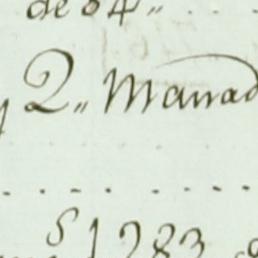 de 84„
y 2„ Manad
S 1283